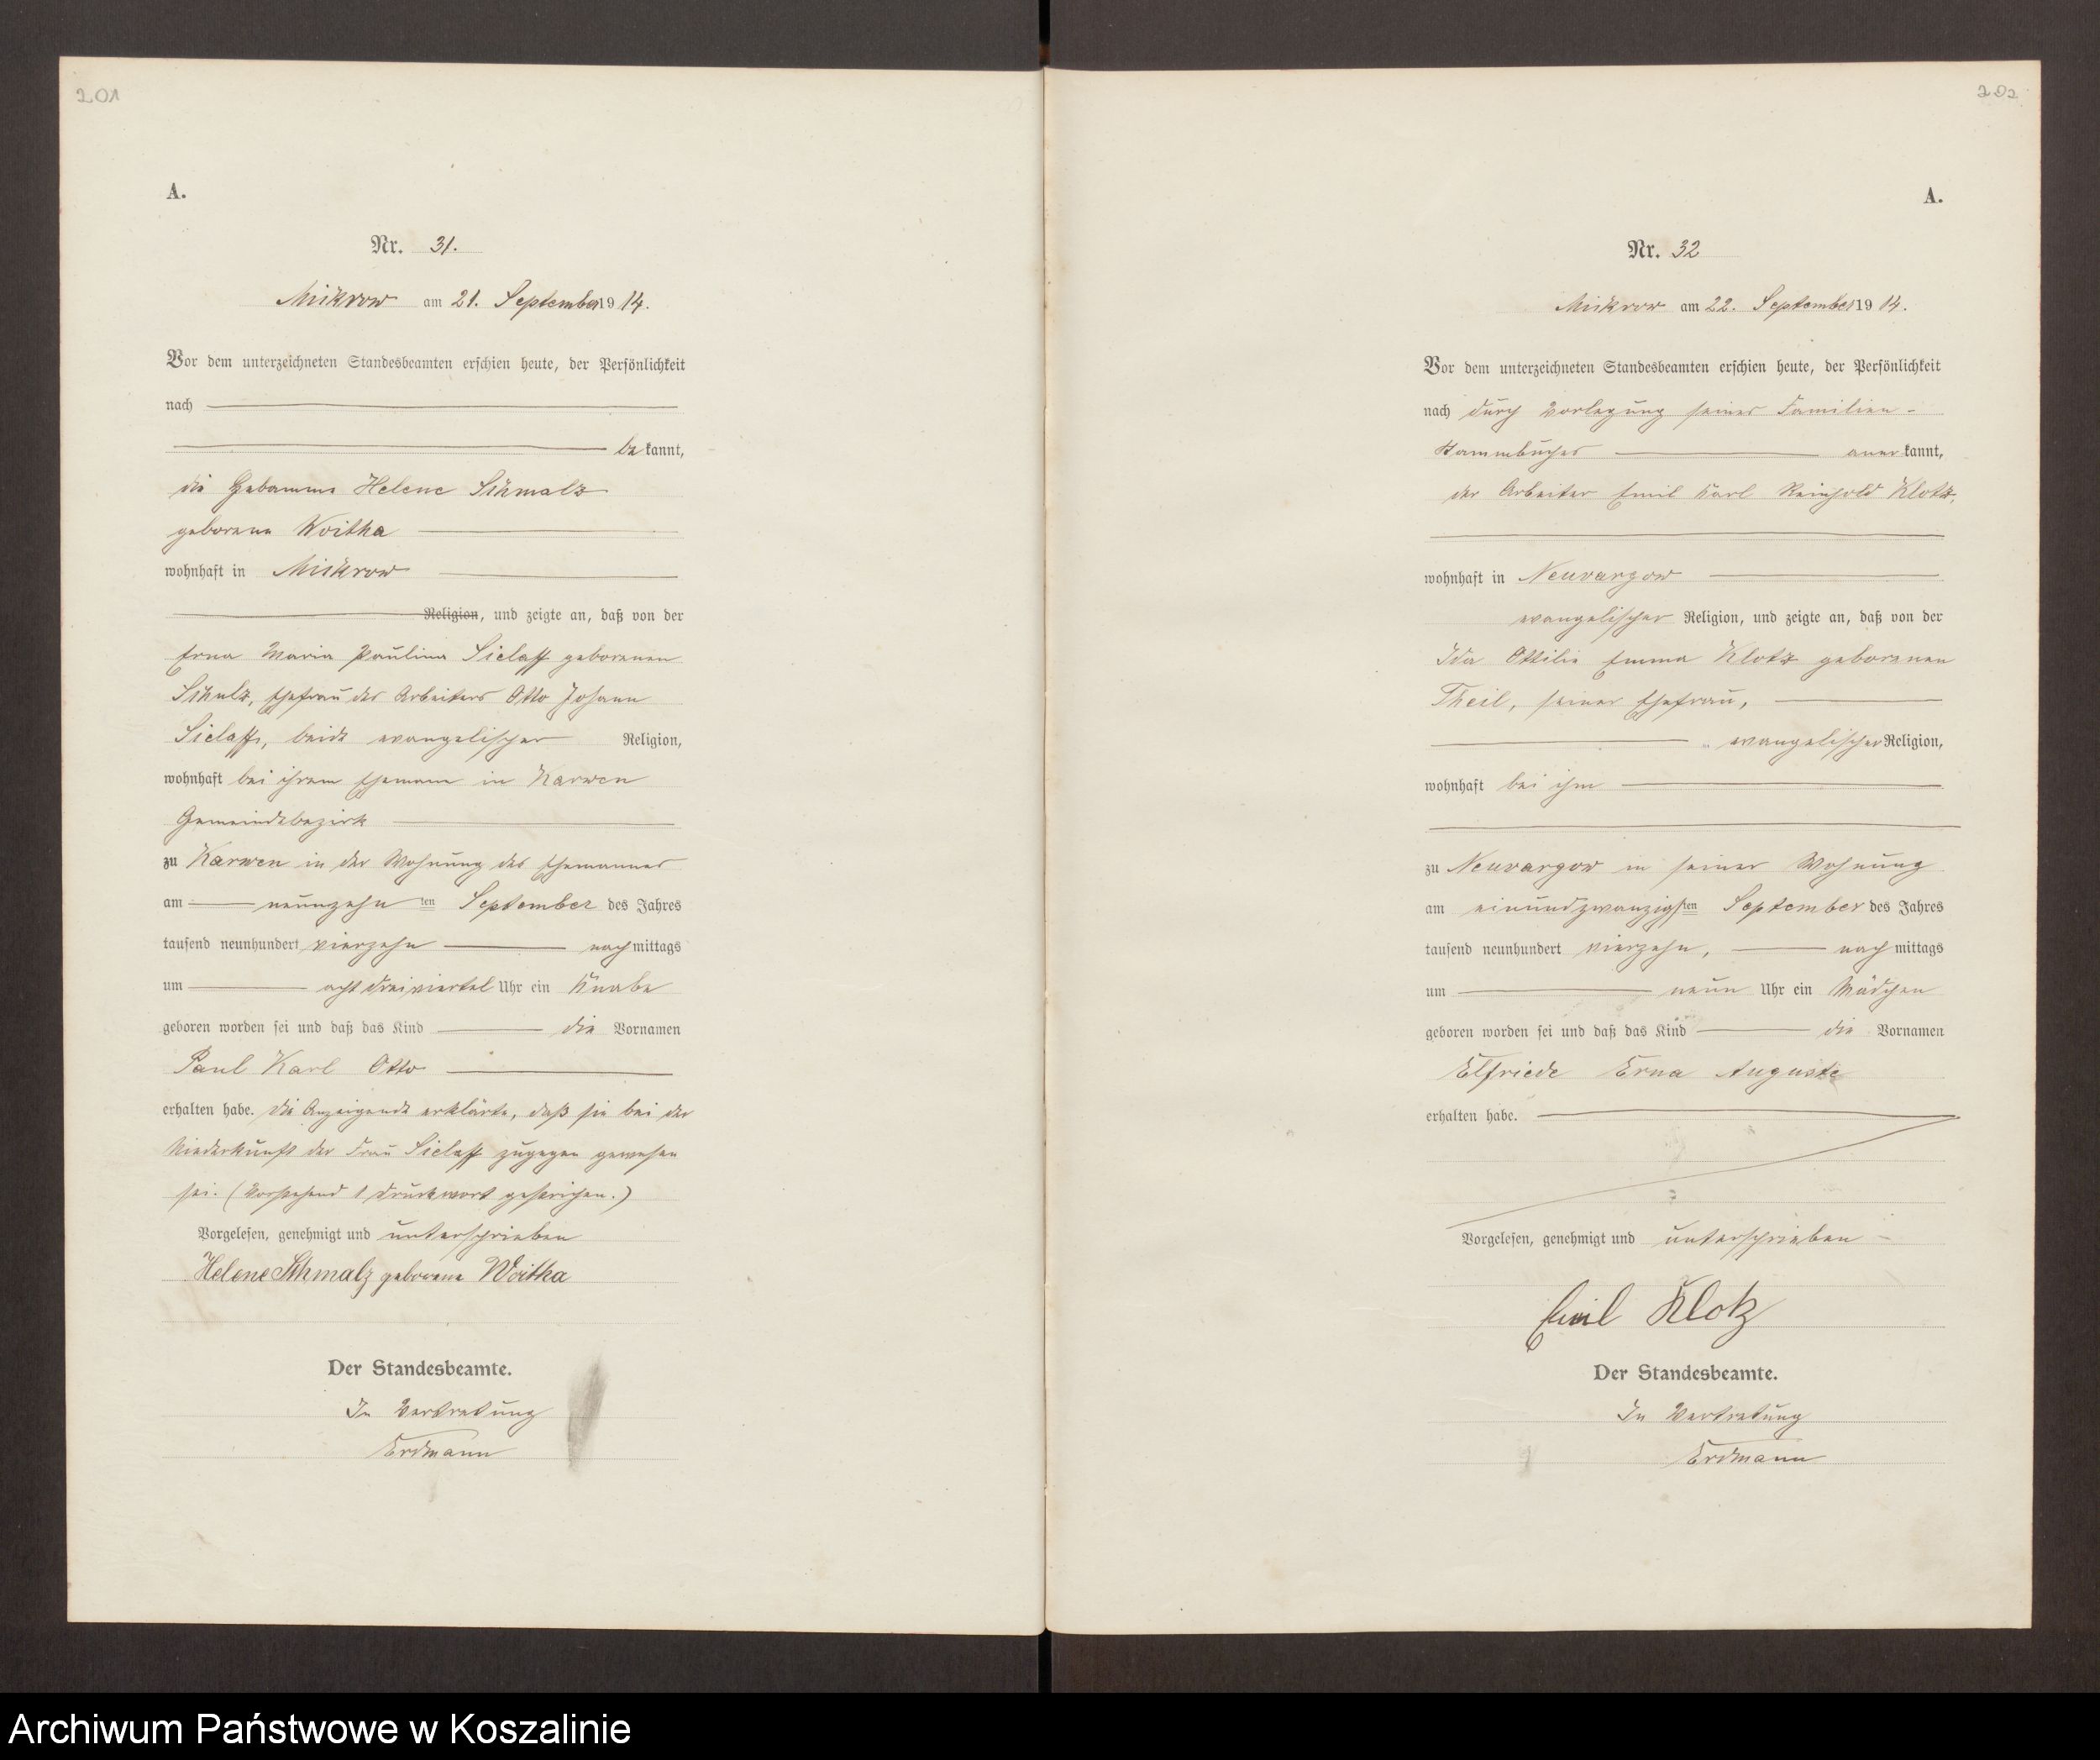 201
A.
Nr. 31.
Mikrow am 21. September 1914.
Vor dem unterzeichneten Standesbeamten erschien heute, der Persönlichkeit
nach
bekannt,
die Hebamme Helene Schmalz
geborene Woitha
wohnhaft in Mikrow
Religion, und zeigte an, daß von der
Erna Maria Pauline Sielaff geborenen
Schulz, Ehefrau des Arbeiters Otto Johann
Sielaff, beide evangelischer Religion,
wohnhaft bei ihrem Ehemann in Karwen
Gemeindebezirk
zu Karwen in der Wohnung des Ehemannes
am neunzehnten September des Jahres
tausend neunhundert vierzehn nachmittags
um acht dreiviertel Uhr ein Knabe
geboren worden sei und daß das Kind die Vornamen
Paul Karl Otto
erhalten habe. Die Anzeigende erklärte, daß sie bei der
Niederkunft der Frau Sielaff zugegen gewesen
sei. (Vorstehend 1 Druckwort gestrichen.)
Vorgelesen, genehmigt und unterschrieben
Helene Schmalz geborene Woitha
Der Standesbeamte.
In Vertretung
Erdmann
202
A.
Nr. 32
Mikrow am 22. September 1914.
Vor dem unterzeichneten Standesbeamten erschien heute, der Persönlichkeit
nach durch Vorlegung seines Familien-
stammbuches anerkannt,
der Arbeiter Emil Karl Reinhold Klotz,
wohnhaft in Neuvargow
evangelischer Religion, und zeigte an, daß von der
Ida Ottilie Emma Klotz geborenen
Theil, seiner Ehefrau,
evangelischer Religion,
wohnhaft bei ihm
zu Neuvargow in seiner Wohnung
am einundzwanzigsten September des Jahres
tausend neunhundert vierzehn, nachmittags
um neun Uhr ein Mädchen
geboren worden sei und daß das Kind die Vornamen
Elfriede Erna Auguste
erhalten habe.
Vorgelesen, genehmigt und unterschrieben
Emil Klotz
Der Standesbeamte.
In Vertretung
Erdmann
Archiwum Państwowe w Koszalinie